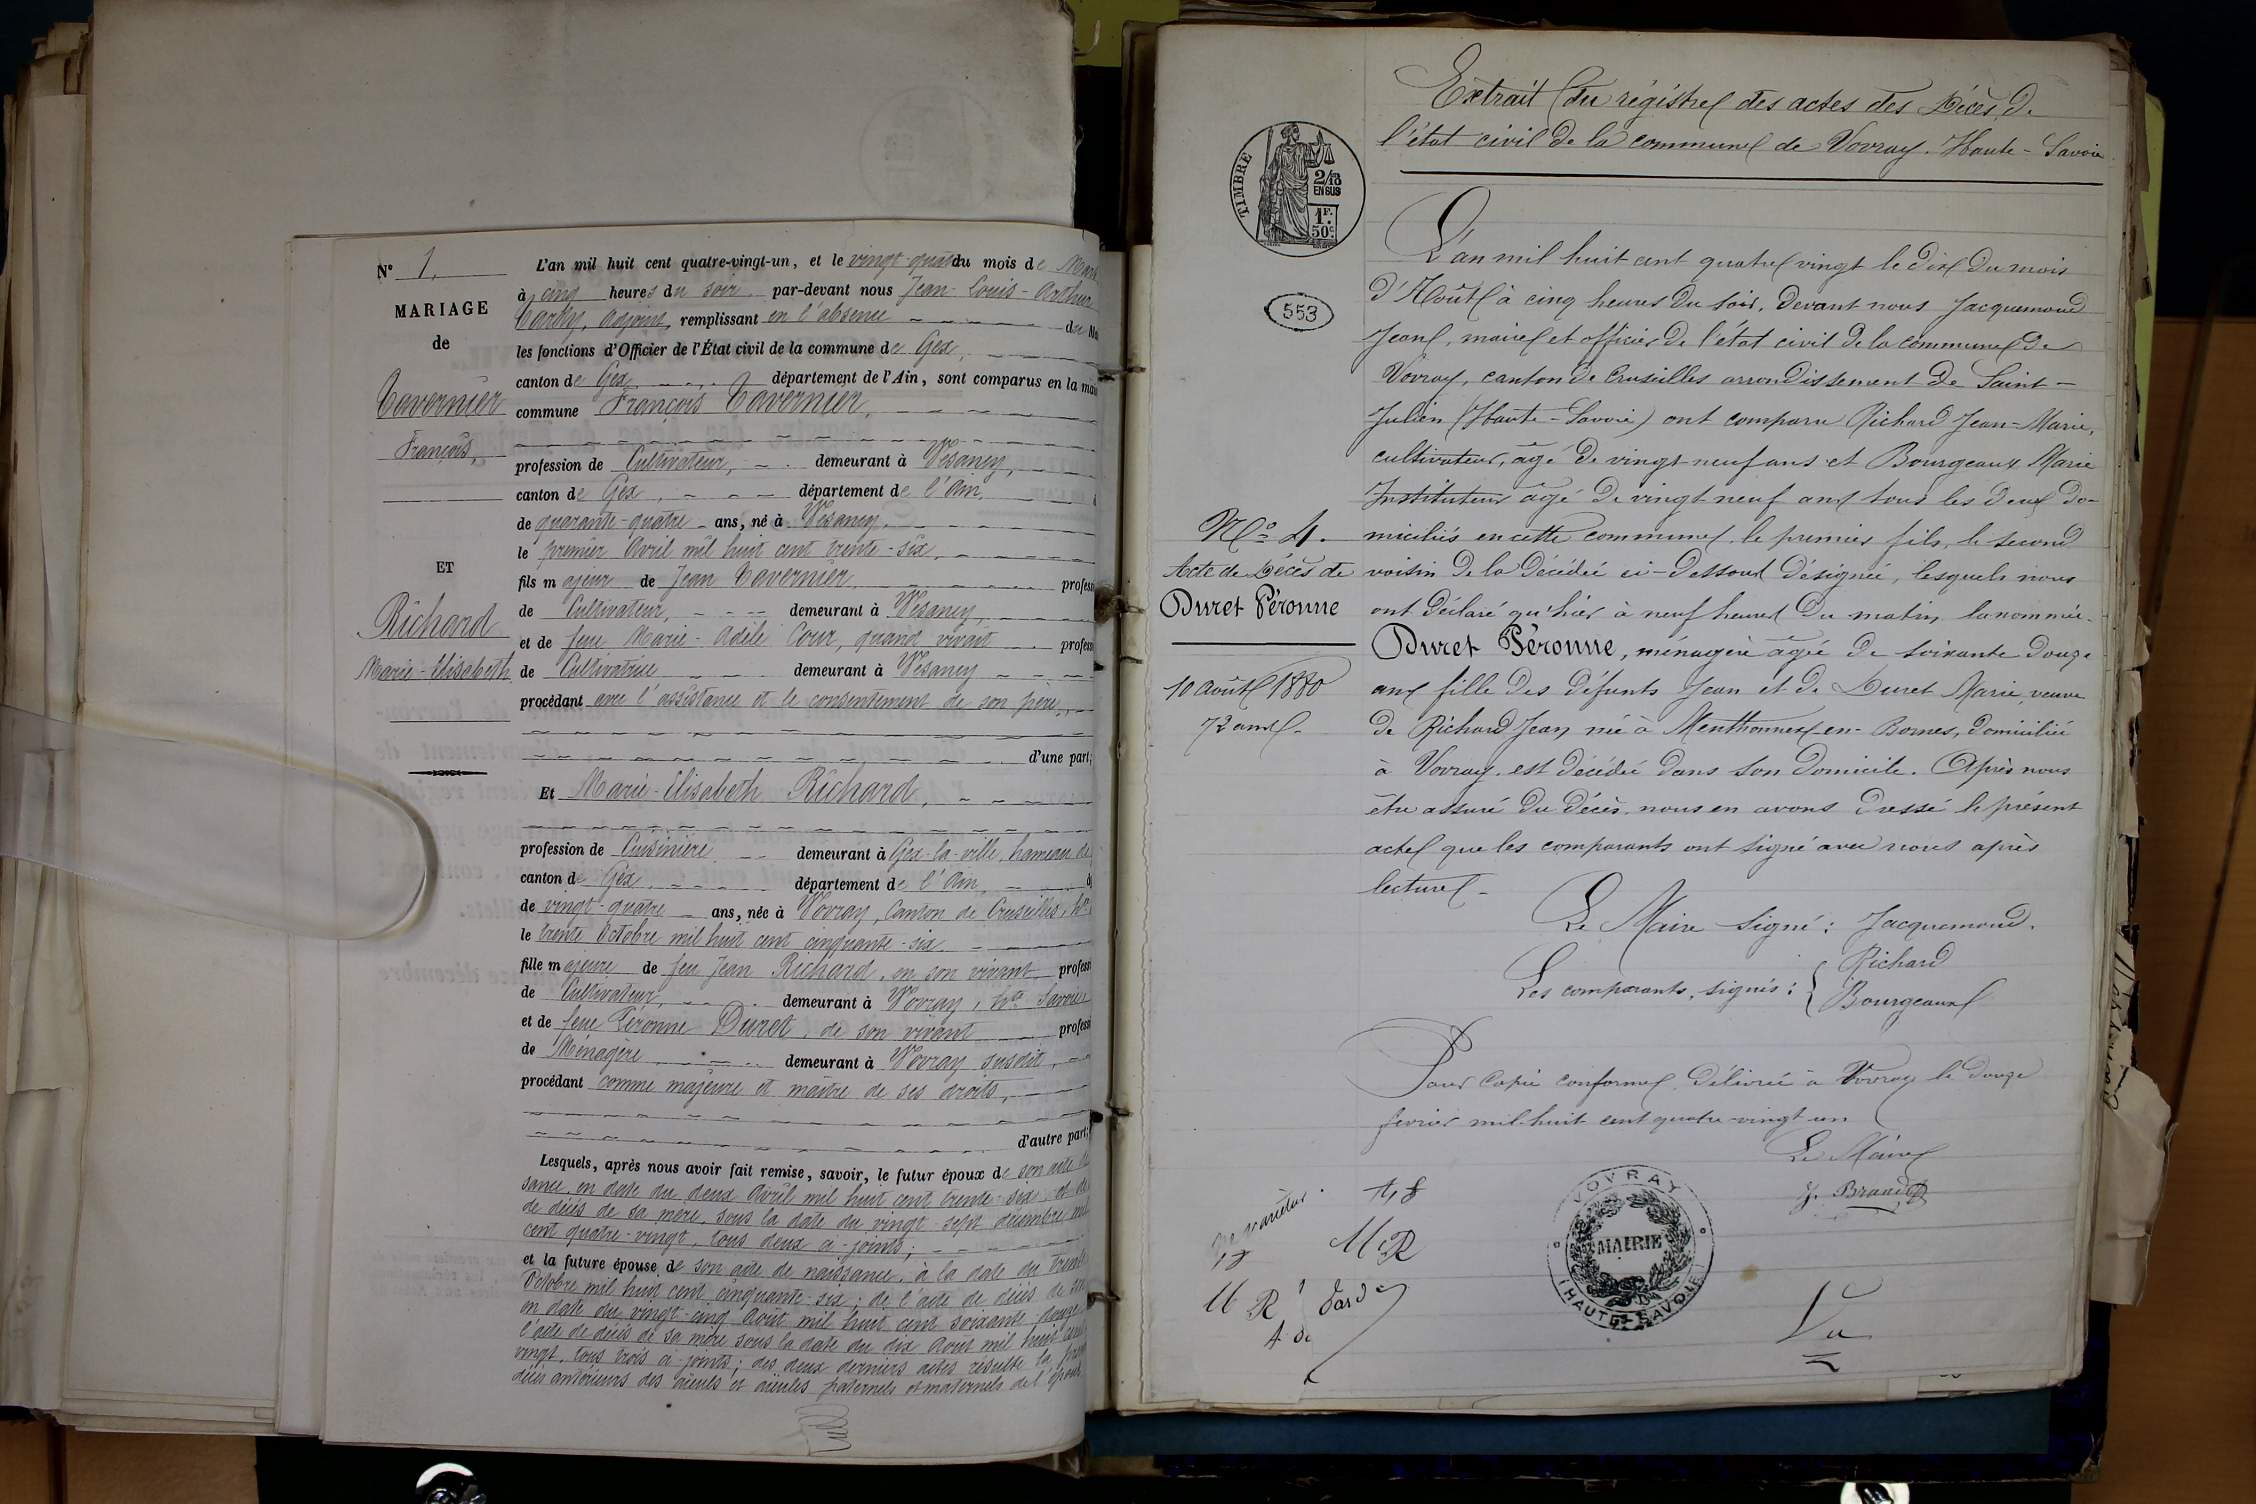 N° 1.
MARIAGE
de
Tavernier
François,
ET
Richard
Marie-Elisabeth
L'an mil huit cent quatre-vingt-un, et le vingt quatre du mois de Mars
à cinq heures du soir par-devant nous Jean-Louis-Arthur
adjoint, remplissant en l'absence du
les fonctions d'Officier de l'État civil de la commune de Gex,
canton de Gex département de l'Ain, sont comparus en la
commune François Tavernier,
profession de Cultivateur, demeurant à Vesancy,
canton de Gex, département de l'Ain,
de quarante-quatre ans, né à Vesancy,
le premier Avril mil huit cent trente-six,
fils majeur de Jean Tavernier, profess
de Cultivateur, demeurant à Vesancy,
et de feue Marie-Adèle Cour, quand vivait profess
de Cultivatrice demeurant à Vesancy
procédant avec l'assistance et le consentement de son père,
d'une part;
Et Marie-Elisabeth Richard,
profession de Cuisinière demeurant à Gex-la-ville, hameau de
canton de Gex, département de l'Ain,
de vingt-quatre ans, née à Vovray, Canton de Cruseilles, Hte
le trente Octobre mil huit cent cinquante-six
fille majeure de feu Jean Richard, en son vivant profess
de Cultivateur, demeurant à Vovray, Hte Savoie
et de feue Péronne Duret, de son vivant profess
de Ménagère, demeurant à Vovray susdit,
procédant comme majeure et maître de ses droits,
d'autre part;
Lesquels, après nous avoir fait remise, savoir, le futur époux de son acte de
sance, en date du deux Avril mil huit cent trente-six et de
de décès de sa mère, sous la date du vingt-sept décembre mil
cent quatre-vingt, tous deux ci-joints;
et la future épouse de son acte de naissance, à la date du trente
Octobre mil huit cent cinquante-six; de l'acte de décès de son
en date du vingt-cinq Août mil huit cent soixante-douze
l'acte de décès de sa mère sous la date du dix Août mil huit cent
vingt, tous trois ci-joints; des deux derniers actes résulte la
décès antérieurs des aïeuls et aïeules paternels et maternels de l'épouse
Extrait du régistre des actes des Décès de
l'état civil de la commune de Vovray. Haute-Savoie
TIMBRE
2/10
EN SUS
1F.
50c.
553
L'an mil huit cent quatre vingt le dix du mois
d'Août à cinq heures du soir, devant nous Jacquemoud
Jean, maire et officier de l'état civil de la commune de
Vovray, canton de Cruseilles arrondissement de Saint-
Julien (Haute-Savoie) ont comparu Richard Jean-Marie,
cultivateur, âgé de vingt-neuf ans et Bourgeaux Marie
Instituteur âgé de vingt neuf ans tous les deux do-
miciliés en cette commune. le premier fils, le second
voisin de la décédée ci-dessous désignée, lesquels nous
ont déclaré qu'hier à neuf heures du matin, la nommée
Duret Péronne, ménagère âgée de soixante douze
ans fille des défunts Jean et de Duret Marie, veuve
de Richard Jean née à Menthonnex-en-Bornes, domiciliée
à Vovray, est décédée dans son domicile. Après nous
être assuré du décès, nous en avons dressé le présent
acte que les comparants ont signé avec nous après
lecture.
N° 4.
Acte de Décès de
Duret Péronne
10 août 1880
72 ans.
Le Maire signé: Jacquemoud.
Les comparants, signés: { Richard
Bourgeaux
Pour Copie conforme Délivrée à Vovray le douze
fevrier mil-huit cent quatre-vingt un
Le Maire
VOVRAY
MAIRIE
(HAUTE-SAVOIE)
Vu